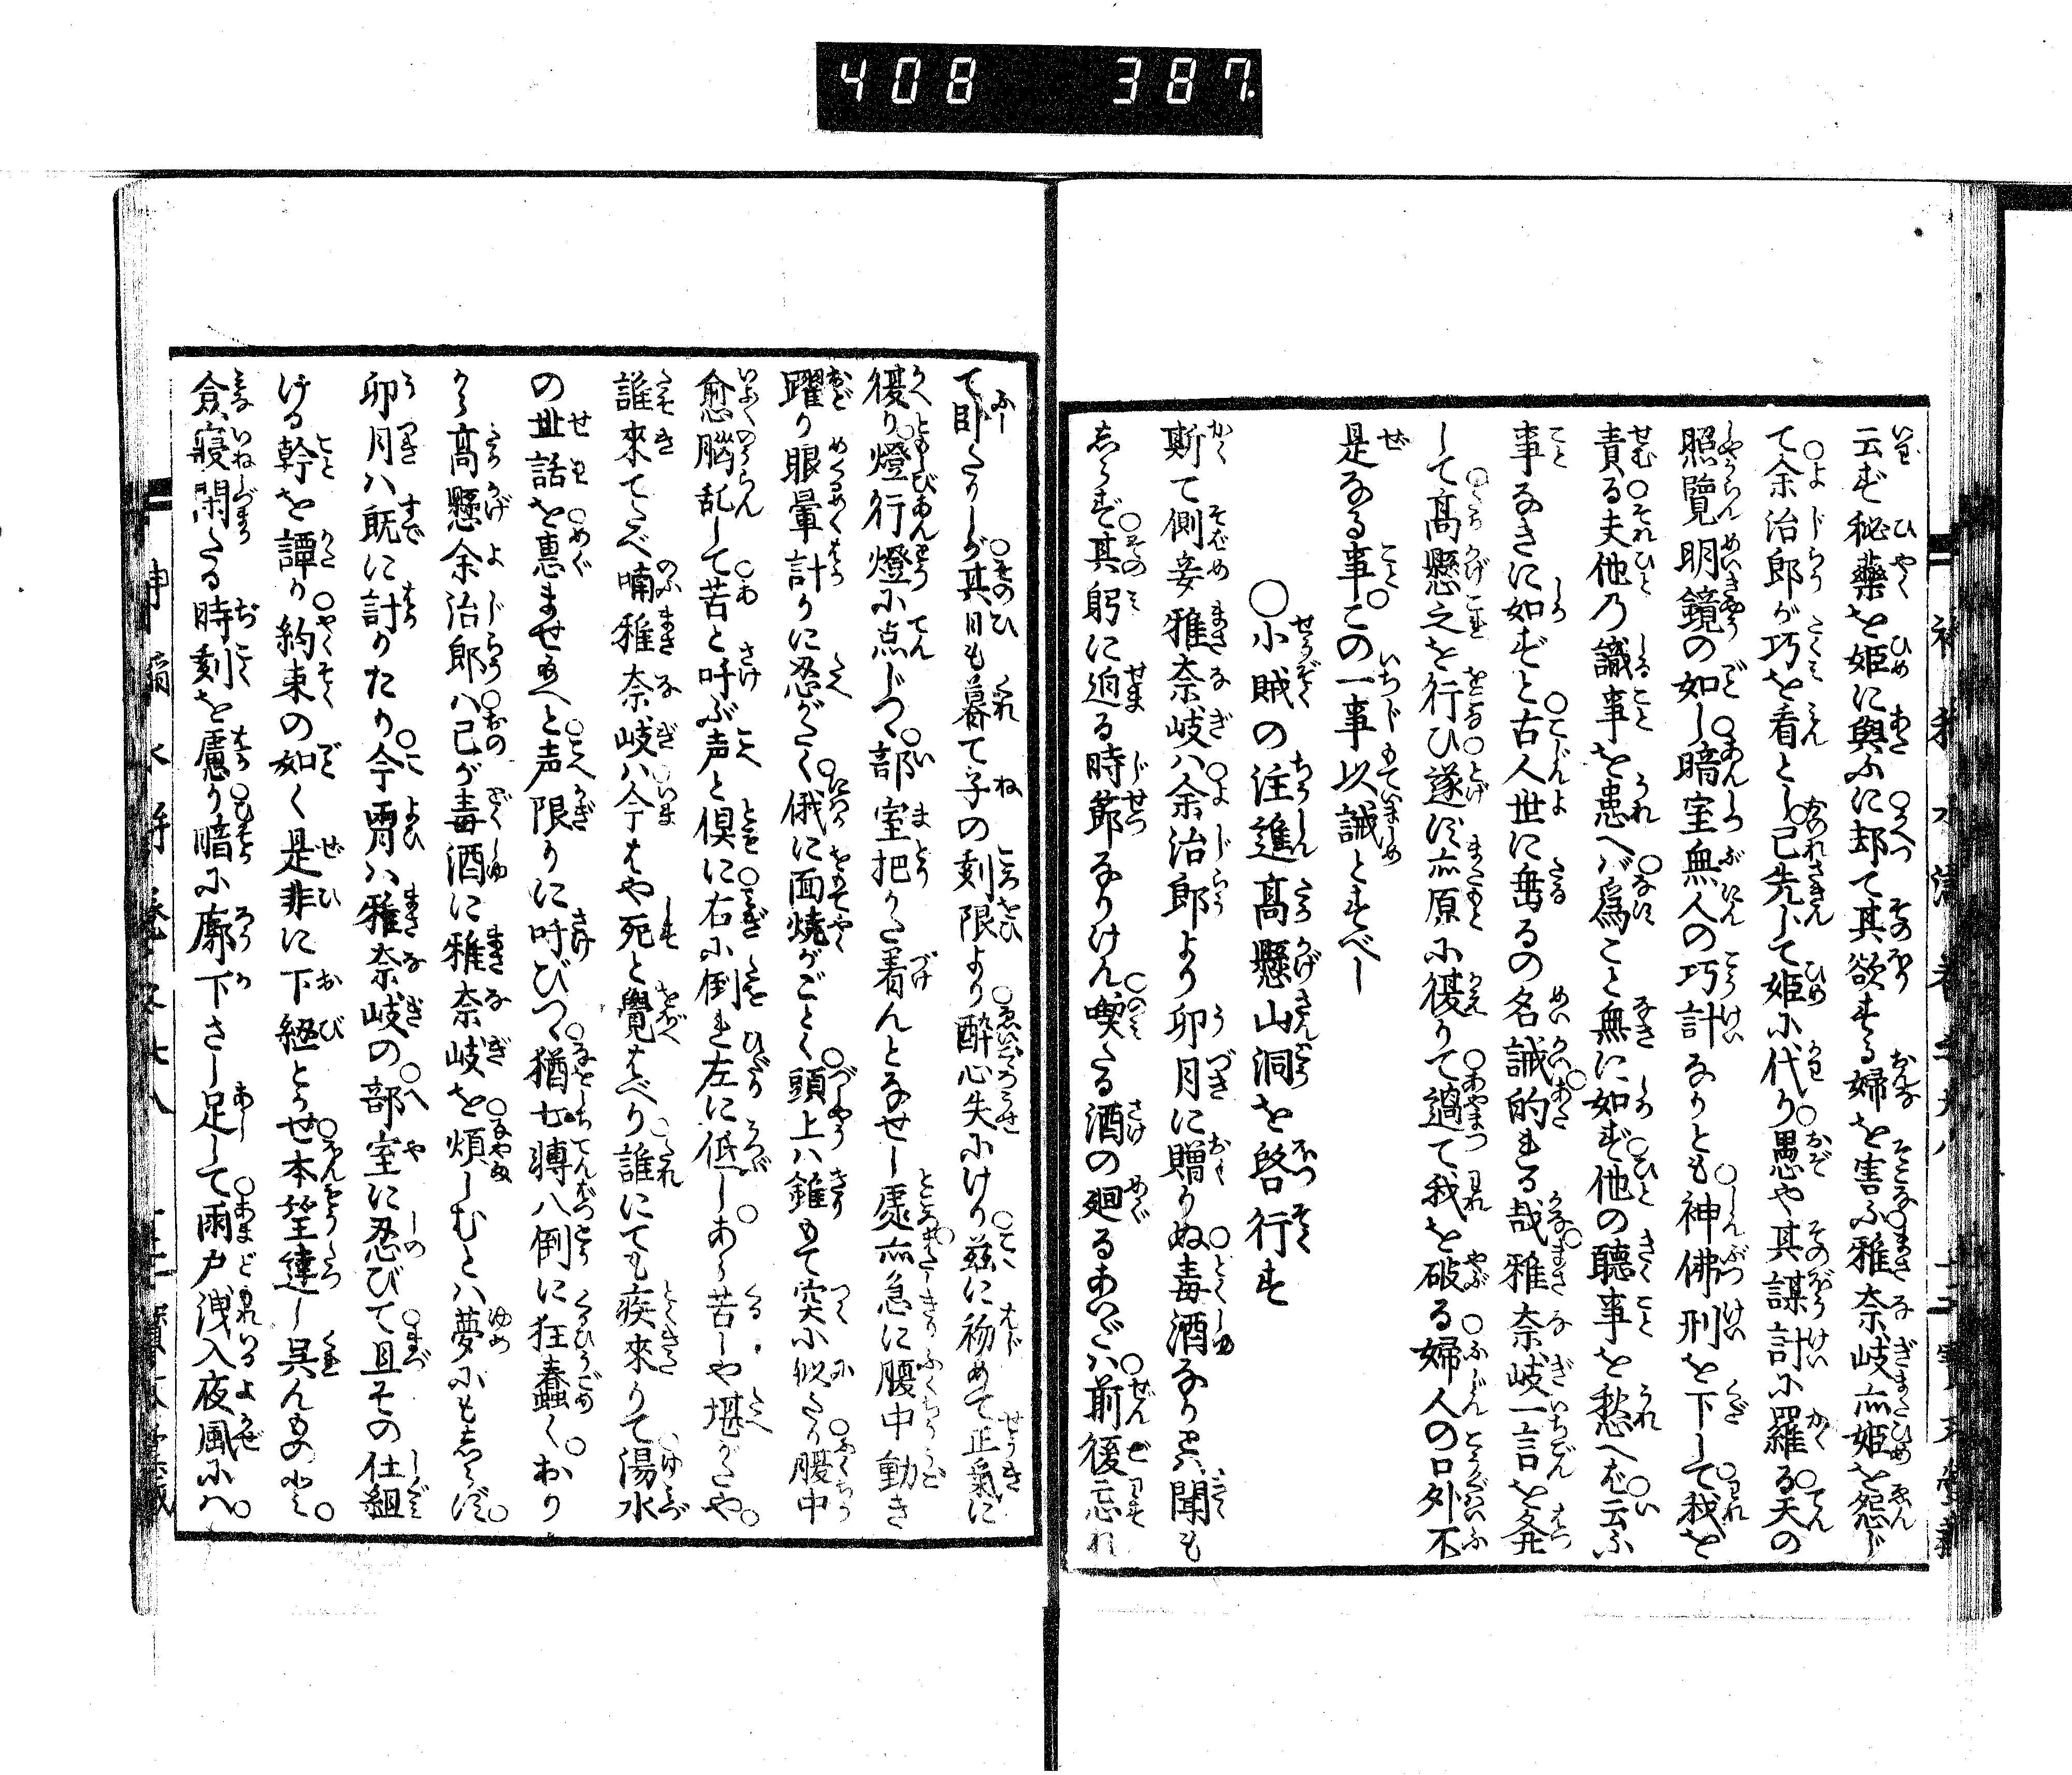 408 387
云ず秘薬を姫に與ふに却て其欲する婦を害ふ雅奈岐亦姫を怨じ
て余治郎が巧を看とし己先じて姫に代り愚や其謀計に羅る天の
照覧明鏡の如し暗室無人の巧計なりとも神佛刑を下して我を
責る夫他の識事を患へば為こと無に如ず他の聴事を愁へば云ふ
事なきに如ずと古人世に垂るの名誡的れる哉雅奈岐一言を発
して高懸之を行ひ遂に亦原に復りて過て我を破る婦人の口外不
是なる事この一事以誡とすべし
○小賊の注進高懸山洞を啓行す
斯て側妾雅奈岐ハ余治郎より卯月に贈りぬ毒酒なりとハ聞も
しらず其躬に迫る時節なりけん喫たる酒の廻るあいだハ前後忘れ
て臥たりしが其日も暮て子の刻限より酔心失にけり茲に初めて正氣に
復り燈行燈に点じつゝ部室把りた着んとなせし處亦急に腹中動き
躍り眼暈計りに忍がたく俄に面焼がごとく頭上ハ錐もて突に似たり腹中
愈腦乱して苦と呼ぶ声と倶に右に倒れ左に低しあら苦しや堪がたや
誰來てたべ喃雅奈岐ハ今はや死と覺はべり誰にても疾來りて湯水
の世話を惠ませ給へと声限りに呼びつゝ猶七轉八倒に狂蠢くおり
から高懸余治郎ハ己が毒酒に雅奈岐を煩しむとハ夢にもしらず
卯月ハ既に計りたり今宵ハ雅奈岐の部室に忍びて且その仕組
ける幹を譚り約束の如く是非に下紐とかせ本望達し呉んものと
僉寝閑たる時刻を慮り暗に廓下さし足して雨戸洩入夜風にハ